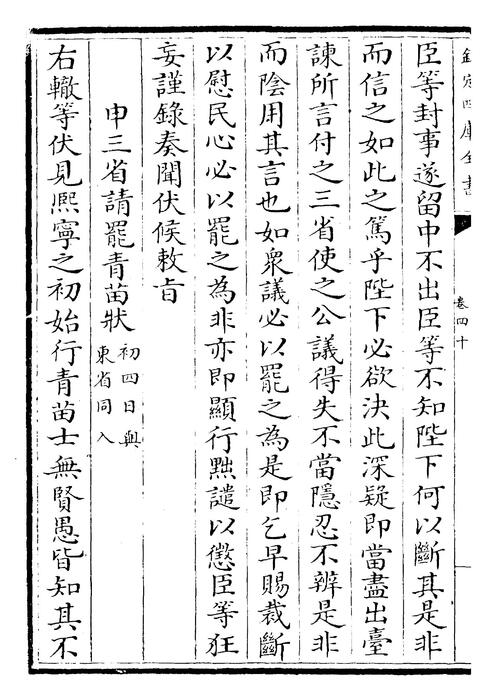 欽定四庫全書
卷四十
臣等封事遂留中不出臣等不知陛下何以斷其是非
而信之如此之篤乎陛下必欲決此深疑即當盡出臺
諫所言付之三省使之公議得失不當隱忍不辨是非
而陰用其言也如衆議必以罷之為是即乞早賜裁斷
以慰民心必以罷之為非亦即顯行黜譴以懲臣等狂
妄謹錄奏聞伏候敕旨
申三省請罷青苗狀初四日與東省同入
右轍等伏見熙寧之初始行青苗士無賢愚皆知其不